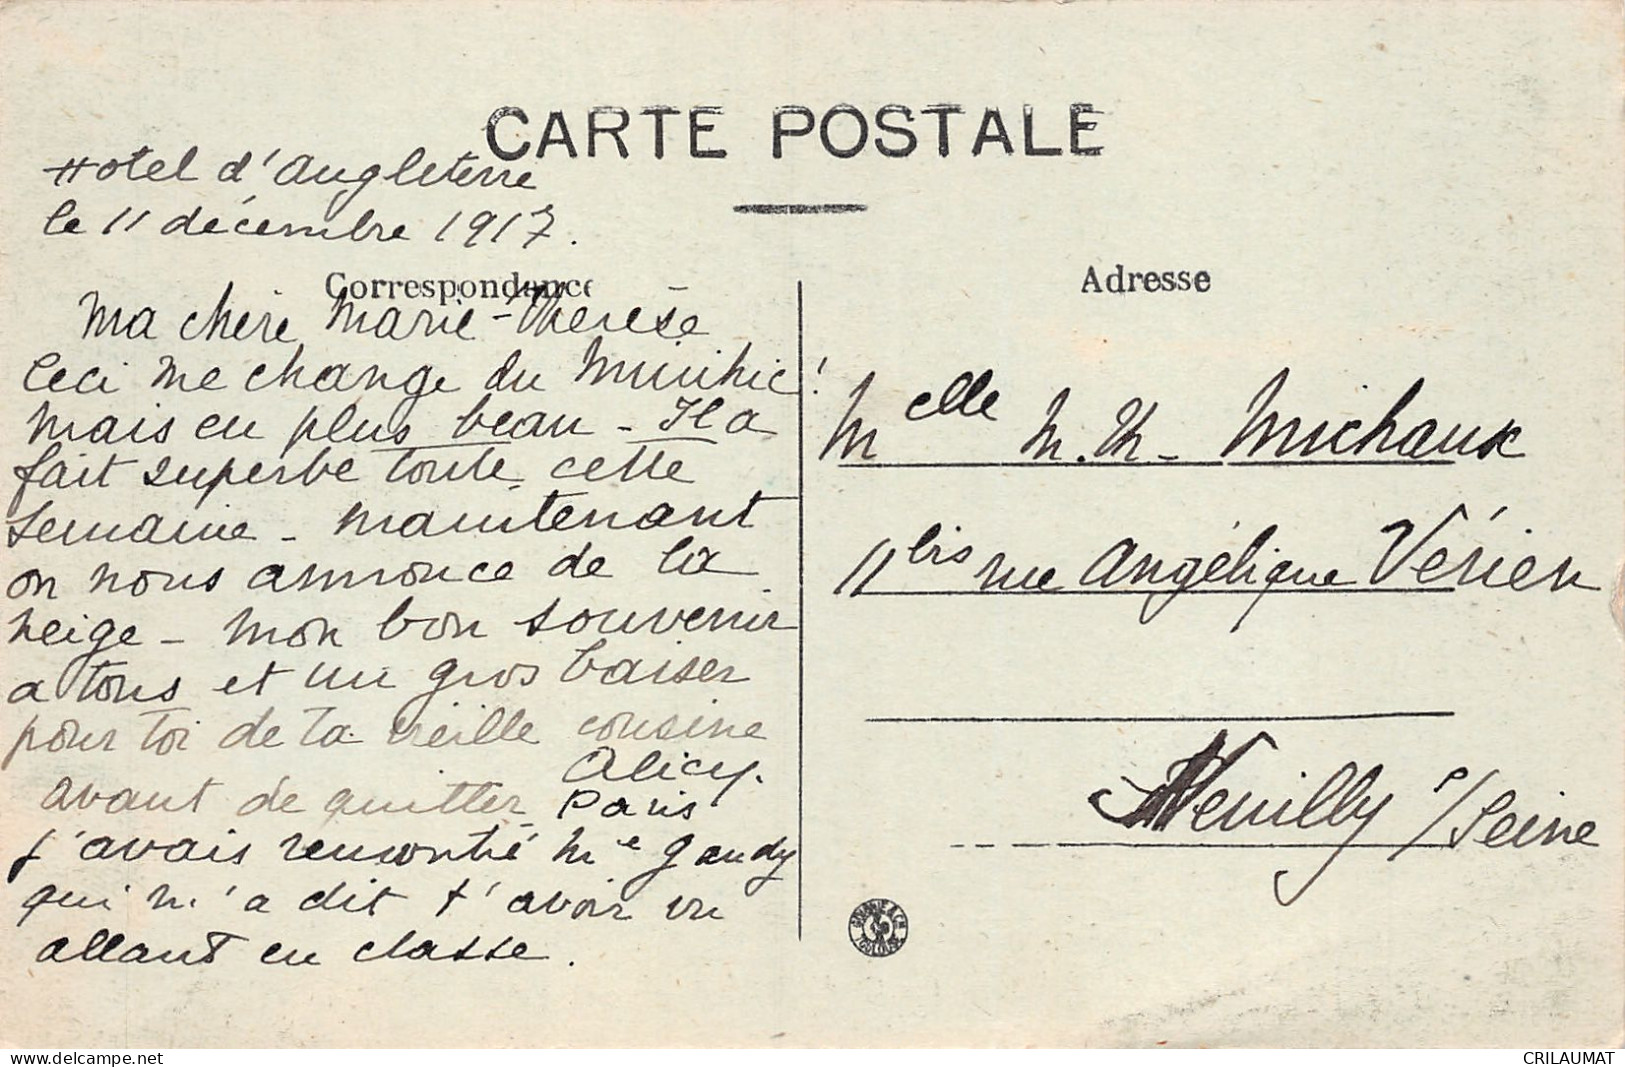 CARTE POSTALE
Hotel d'Angleterre
le 11 décembre 1917.
Correspondance
Adresse
Ma chère Marie-Thérèse
Ceci me change du Minihic!
mais en plus beau - Il a
fait superbe toute cette
semaine - maintenant
on nous annonce de la
neige - mon bon souvenir
a tous et un gros baiser
pour toi de ta vieille cousine
Alicy.
avant de quitter Paris
j'avais rencontré Me Gaudy
qui m'a dit t'avoir vu
allant en classe.
Melle M.Th. Michaux
11bis rue Angélique Vérien
Neuilly s/Seine
CRILAUMAT